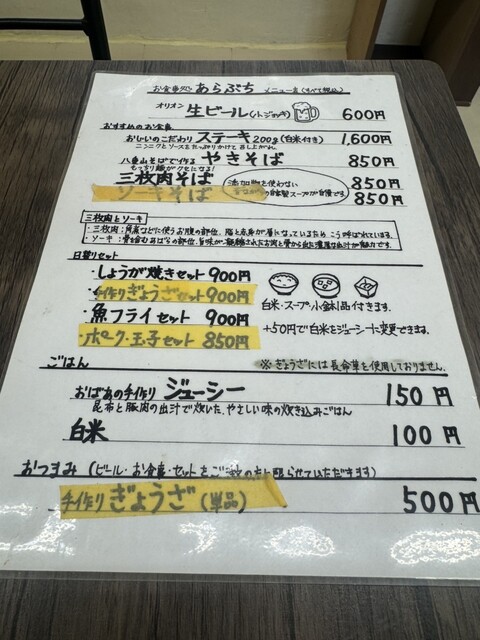 お食事処 あらぶち メニュー表(すべて税込)
オリオン 生ビール(小ジョッキ) 600円
おすすめのお食事
おじぃのこだわり ステーキ 200g(白米付き) 1,600円
ニンニクとソースをたっぷりかけてお召し上がれ。
八重山そばで作る やきそば 850円
もっちり麺がクセになる!
三枚肉そば 850円
ソーキそば 850円
添加物を使わない
自家製スープが自慢です
三枚肉とソーキ
・三枚肉:角煮などに使うお腹の部位。脂と赤身が層になっているため、こう呼ばれています。
・ソーキ:骨を含むあばらの部位。旨味が凝縮されたお肉と骨から出た濃厚な出汁が魅力です。
日替りセット
・しょうが焼きセット 900円
・手作りぎょうざセット 900円
・魚フライセット 900円
・ポーク・玉子セット 850円
白米・スープ・小鉢1品付きます。
+50円で白米をジューシーに変更できます。
ごはん
※ぎょうざには長命草を使用しておりません。
おばあの手作り ジューシー 150円
昆布と豚肉の出汁で炊いた、やさしい味の炊き込みごはん
白米 100円
おつまみ (ビール・お食事・セットをご注文の方と限らせていただきます)
手作りぎょうざ (単品) 500円